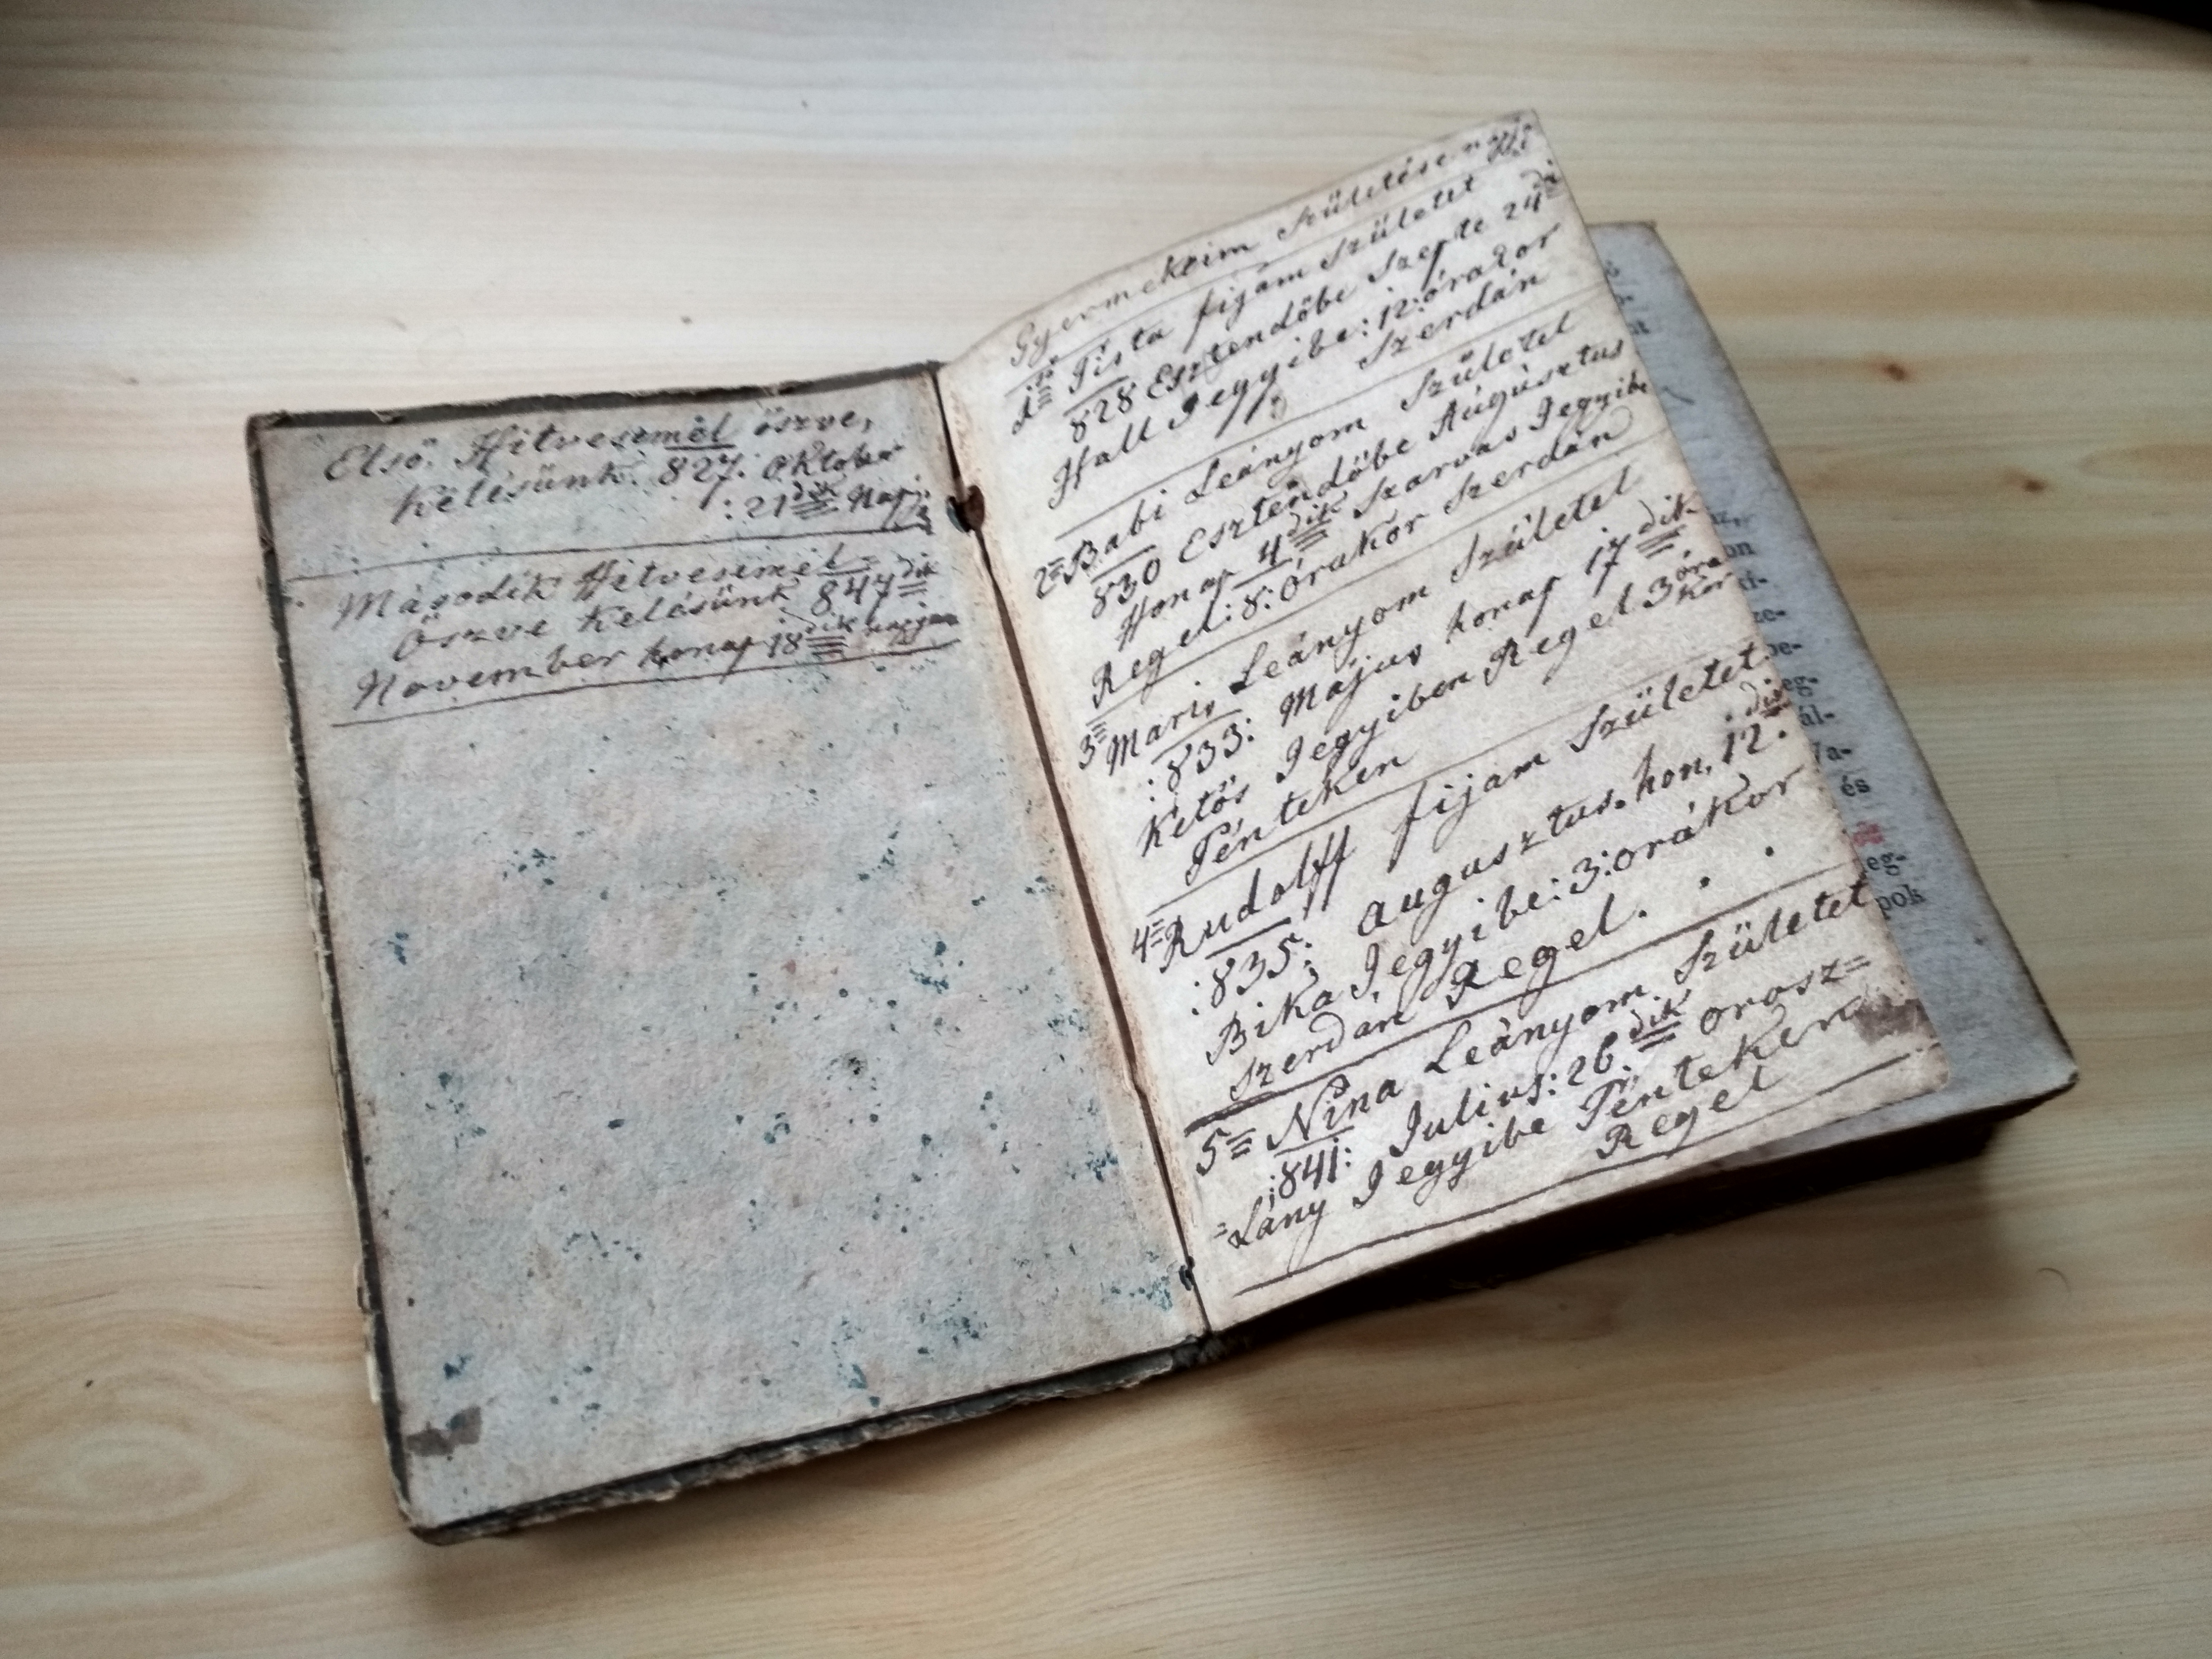 Első. Hitvesemèl öszve,
kelésünk: 827: Oktober
:21dik Nap:
Második Hitvesemèl
Öszve Kelésünk 847dik
November honap 18dik napjan
Gyermekeim Születése
1ső Pista fijam Született
828 Esztendőbe Szepte 24dik
Hall Jegyibe: 12: órakor
Szerdán
2= Babi Leányom Születet
830 Esztendőbe Augusztus
Honap 4dik Szarvas Jegyibe
Regel: 8: órakor Szerdán
3= Maris Leányom Születet
:833: Május honap 17dik
Kétős Jegyiben Regel 3 óra
kor
Pénteken
4= Rudolff fijam Születet
:835: augusztus. hon. 12.dik
Bika Jegyibe: 3: orákor
Szerdan Regel.
5= Nina Leányom Született
:841: Julius: 26.dik orosz=
=Lány Jegyibe Pénteken
Regel
on
ze-
be-
eg-
ál-
la-
és
eg-
pok